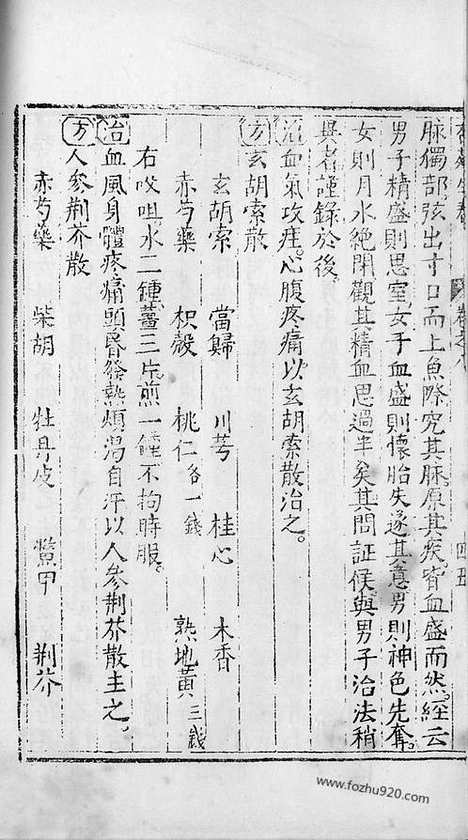 脉獨部弦出寸口而上魚際究其脉原其疾皆血盛而然經云
男子精盛則思室女子血盛則懷胎失遂其意男則神色先奪
女則月水絶閉觀其精血思過半矣其間証候與男子治法稍
異者謹錄於後
治血氣攻疰心腹疼痛以玄胡索散治之
方玄胡索散
玄胡索 當歸 川芎 桂心 木香
赤芍藥 枳殻 桃仁各一錢 熟地黄三錢
右㕮咀水二鍾薑三片煎一鍾不拘時服
治血風身體疼痛頭昏發熱煩渴自汗以人參荆芥散主之
方人參荆芥散
赤芍藥 柴胡 牡丹皮 鱉甲 荆芥
www.fozhu920.com